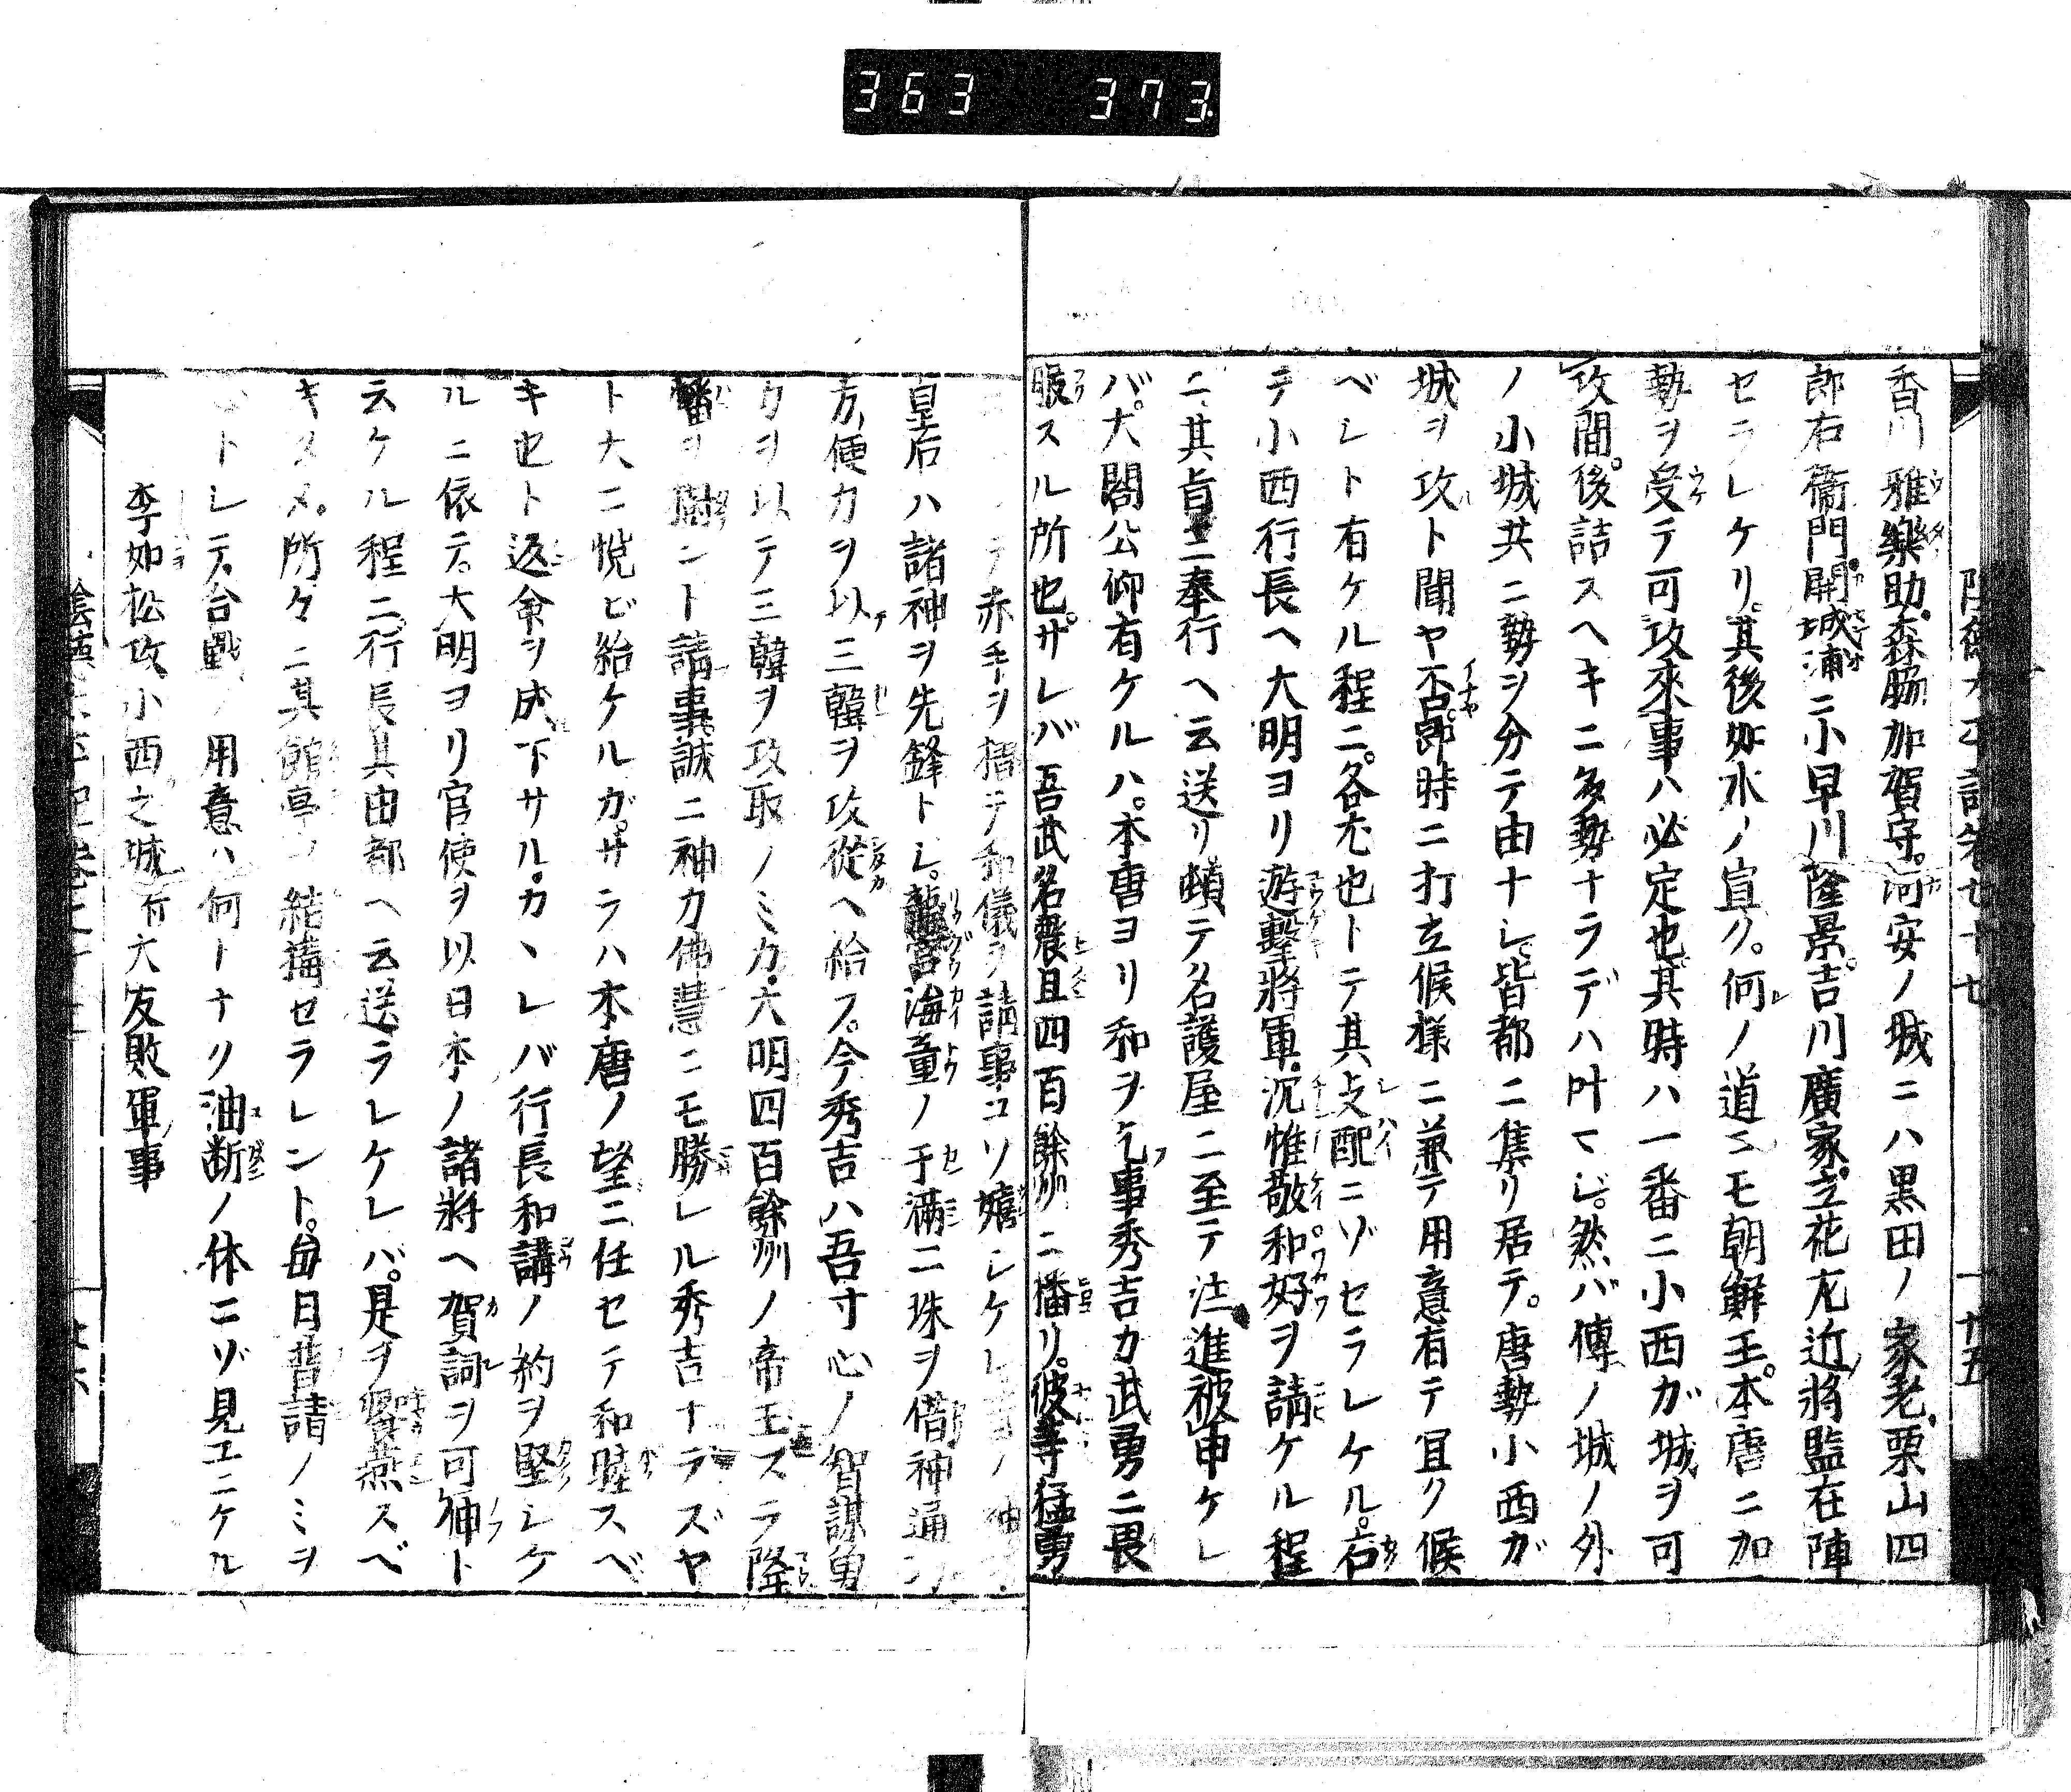 363 373
香川雅樂助。森脇加賀守。河安ノ城ニハ黒田ノ家老。栗山四
郎右衞門。開城浦ニ小早川隆景。吉川廣家。立花左近將監在陣
セラレケリ。其後如水ノ宣ク。何ノ道ニモ朝鮮王。本唐ニ加
勢ヲ受テ可攻來事ハ必定也。其時ハ一番ニ小西ガ城ヲ可
攻間。後詰スヘキニ多勢ナラデハ叶マジ。然バ傳ノ城ノ外
ノ小城共ニ勢ヲ分テ由ナシ。皆都ニ集リ居テ。唐勢小西ガ
城ヲ攻ト聞ヤ否。即時ニ打立候樣ニ兼テ用意有テ宜ク候
ベシト有ケル程ニ。各尤也トテ其支配ニゾセラレケル。右
テ小西行長ヘ大明ヨリ遊擊將軍。沉惟敬和好ヲ請ケル程
ニ其旨三奉行ヘ云送リ頓テ名護屋ニ至テ注進被申ケレ
バ。大閤公仰有ケルハ。本唐ヨリ和ヲ乞事秀吉カ武勇ニ畏
服スル所也。サレバ吾武名震且四百餘州ニ播リ。彼等猛勇
テ赤手ヲ摺テ和儀ヲ請事コソ嬉シケレ
皇后ハ諸神ヲ先鋒トシ。龍宮海童ノ于滿二珠ヲ借神通
方便カヲ以三韓ヲ攻從ヘ給フ。今秀吉ハ吾寸心ノ智謀勇
力ヲ以テ三韓ヲ攻取ノミカ。大明四百餘州ノ帝王スラ降
幡ヲ樹ント請事誠ニ神力佛慧ニモ勝レル秀吉ナラズヤ
ト大ニ悅ビ給ケルガ。サラハ本唐ノ望ニ任セテ和睦スベ
キ也ト返命ヲ成下サル。カヽレバ行長和講ノ約ヲ堅シケ
ルニ依テ。大明ヨリ官使ヲ以日本ノ諸將ヘ賀詞ヲ可伸ト
云ケル程ニ。行長其由都ヘ云送ラレケレバ。是ヲ饗燕スベ
キタメ。所々ニ其館亭ノ結構セラレント。毎日普請ノミヲ
トシテ。合戰ノ用意ハ何トナリ油断ノ休ニゾ見エニケル
李如松攻小西之城付大友敗軍事